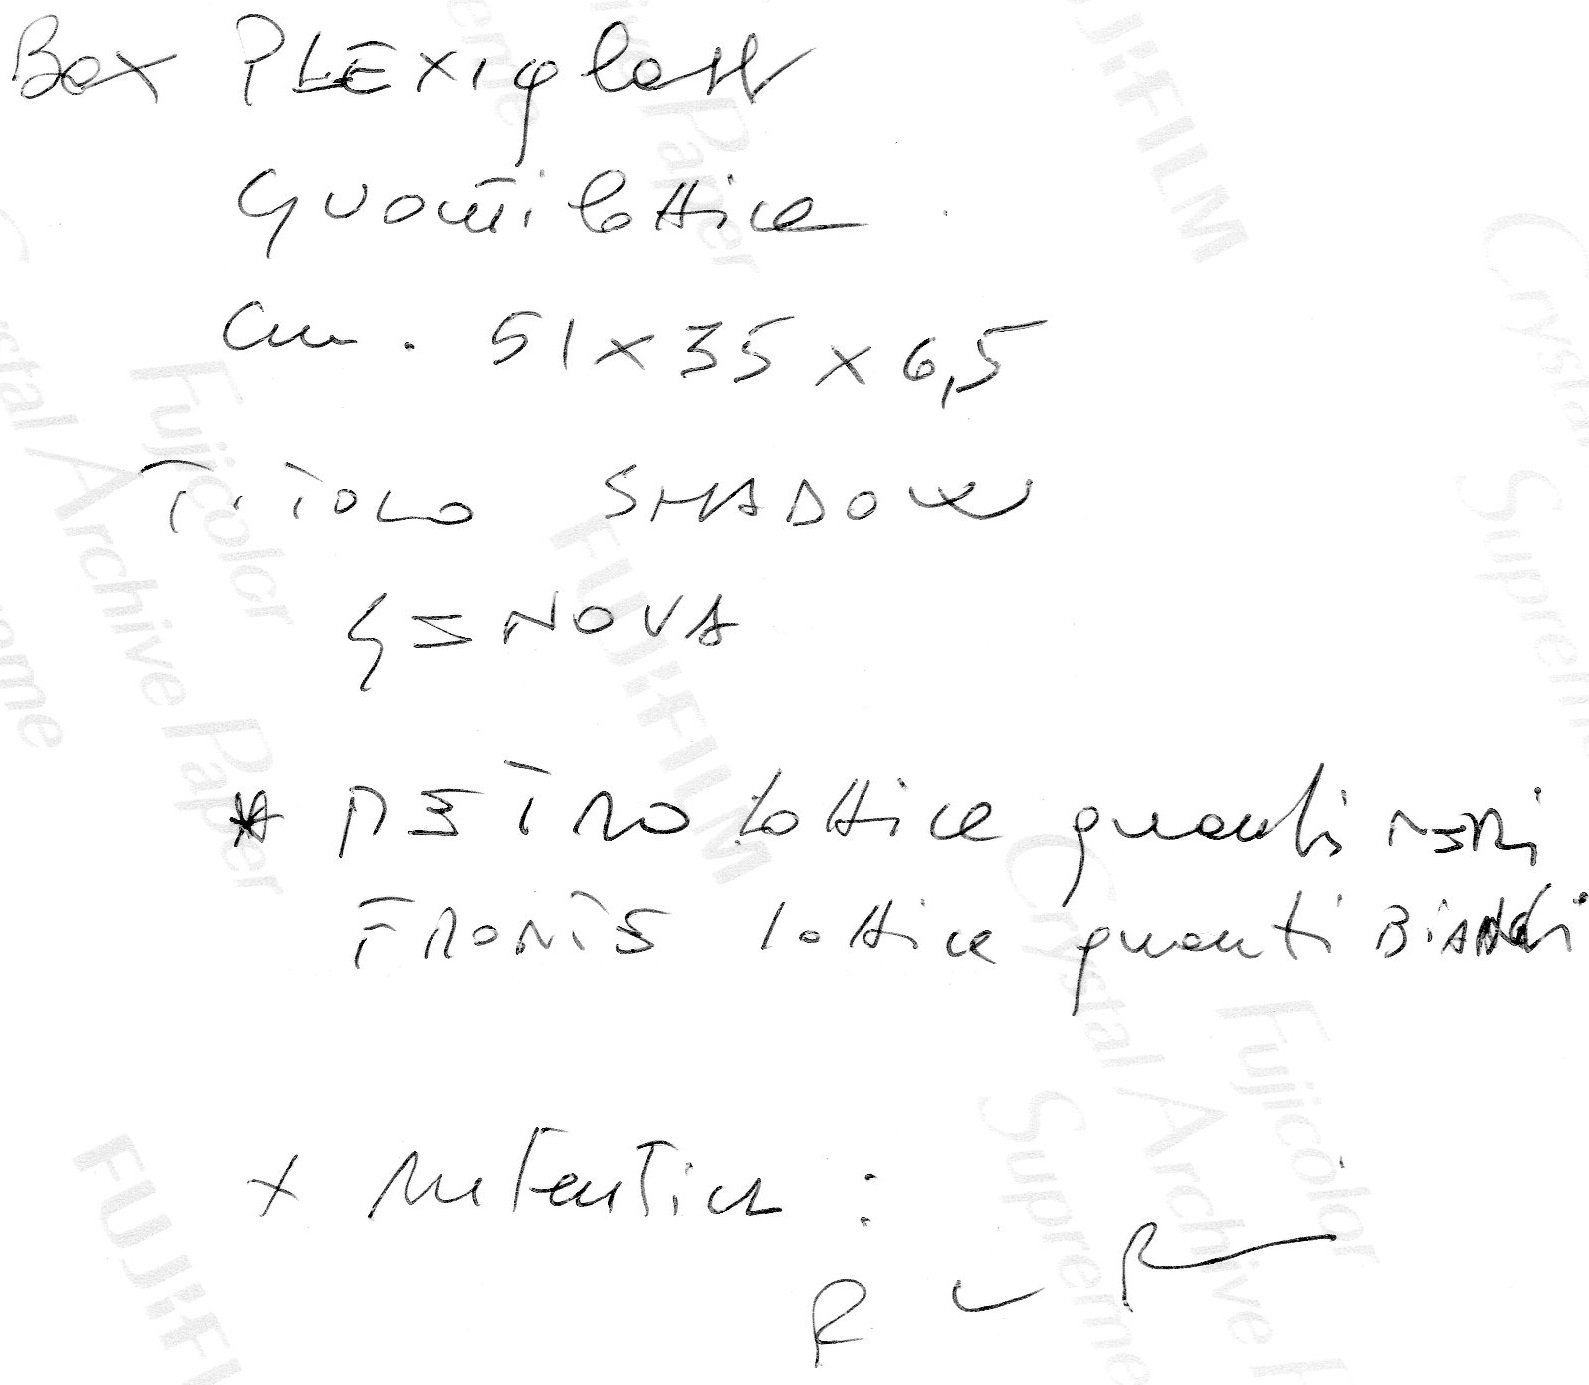 Box PLEXIglass
GUanti lattice
Cm. 51 x 35 x 6,5
TITOLO SHADOW
GENOVA
* RETRO lattice guanti NERI
FRONTE lattice guanti BIANchi
x Autentica :
FUJIFILM
Fujicolor
Crystal Archive Paper
Supreme